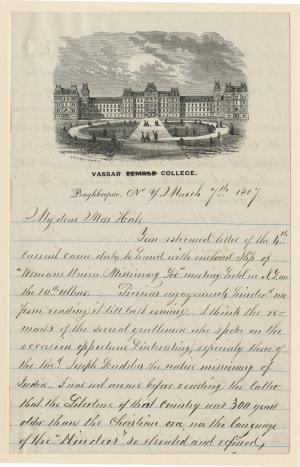 VASSAR FEMALE COLLEGE.
Poughkeepsie, N. Y. March 7th 1867
My dear Mrs Hale
Your esteemed letter of the 4th
current came duly to hand with enclosed slip of
"Womans Union Missionary Soc" meeting held in N.Y. on
the 10th ultimo. Previous engagements hindered me
from reading it till last evening. I think the re-
marks of the several gentlemen who spoke on the
occasion opportune & interesting, especially those of
the Revd Joseph the native missionary of
India. I was not aware before reading the latter
that the Literature of that country was 300 years
older than the Christian era, nor the language
of the "Hindoos" so elevated and refined,